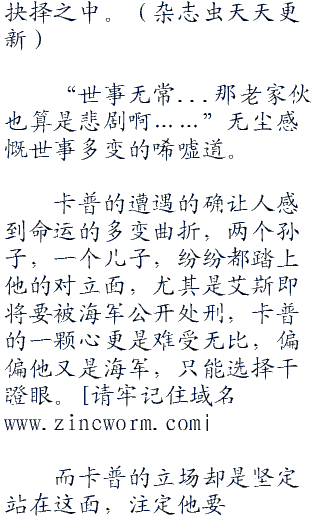 抉择之中。（杂志虫天天更
新）
“世事无常...那老家伙
也算是悲剧啊……”无尘感
慨世事多变的唏嘘道。
卡普的遭遇的确让人感
到命运的多变曲折，两个孙
子，一个儿子，纷纷都踏上
他的对立面，尤其是艾斯即
将要被海军公开处刑，卡普
的一颗心更是难受无比，偏
偏他又是海军，只能选择干
瞪眼。[请牢记住域名
www.zincworm.com|
而卡普的立场却是坚定
站在这面，注定他要